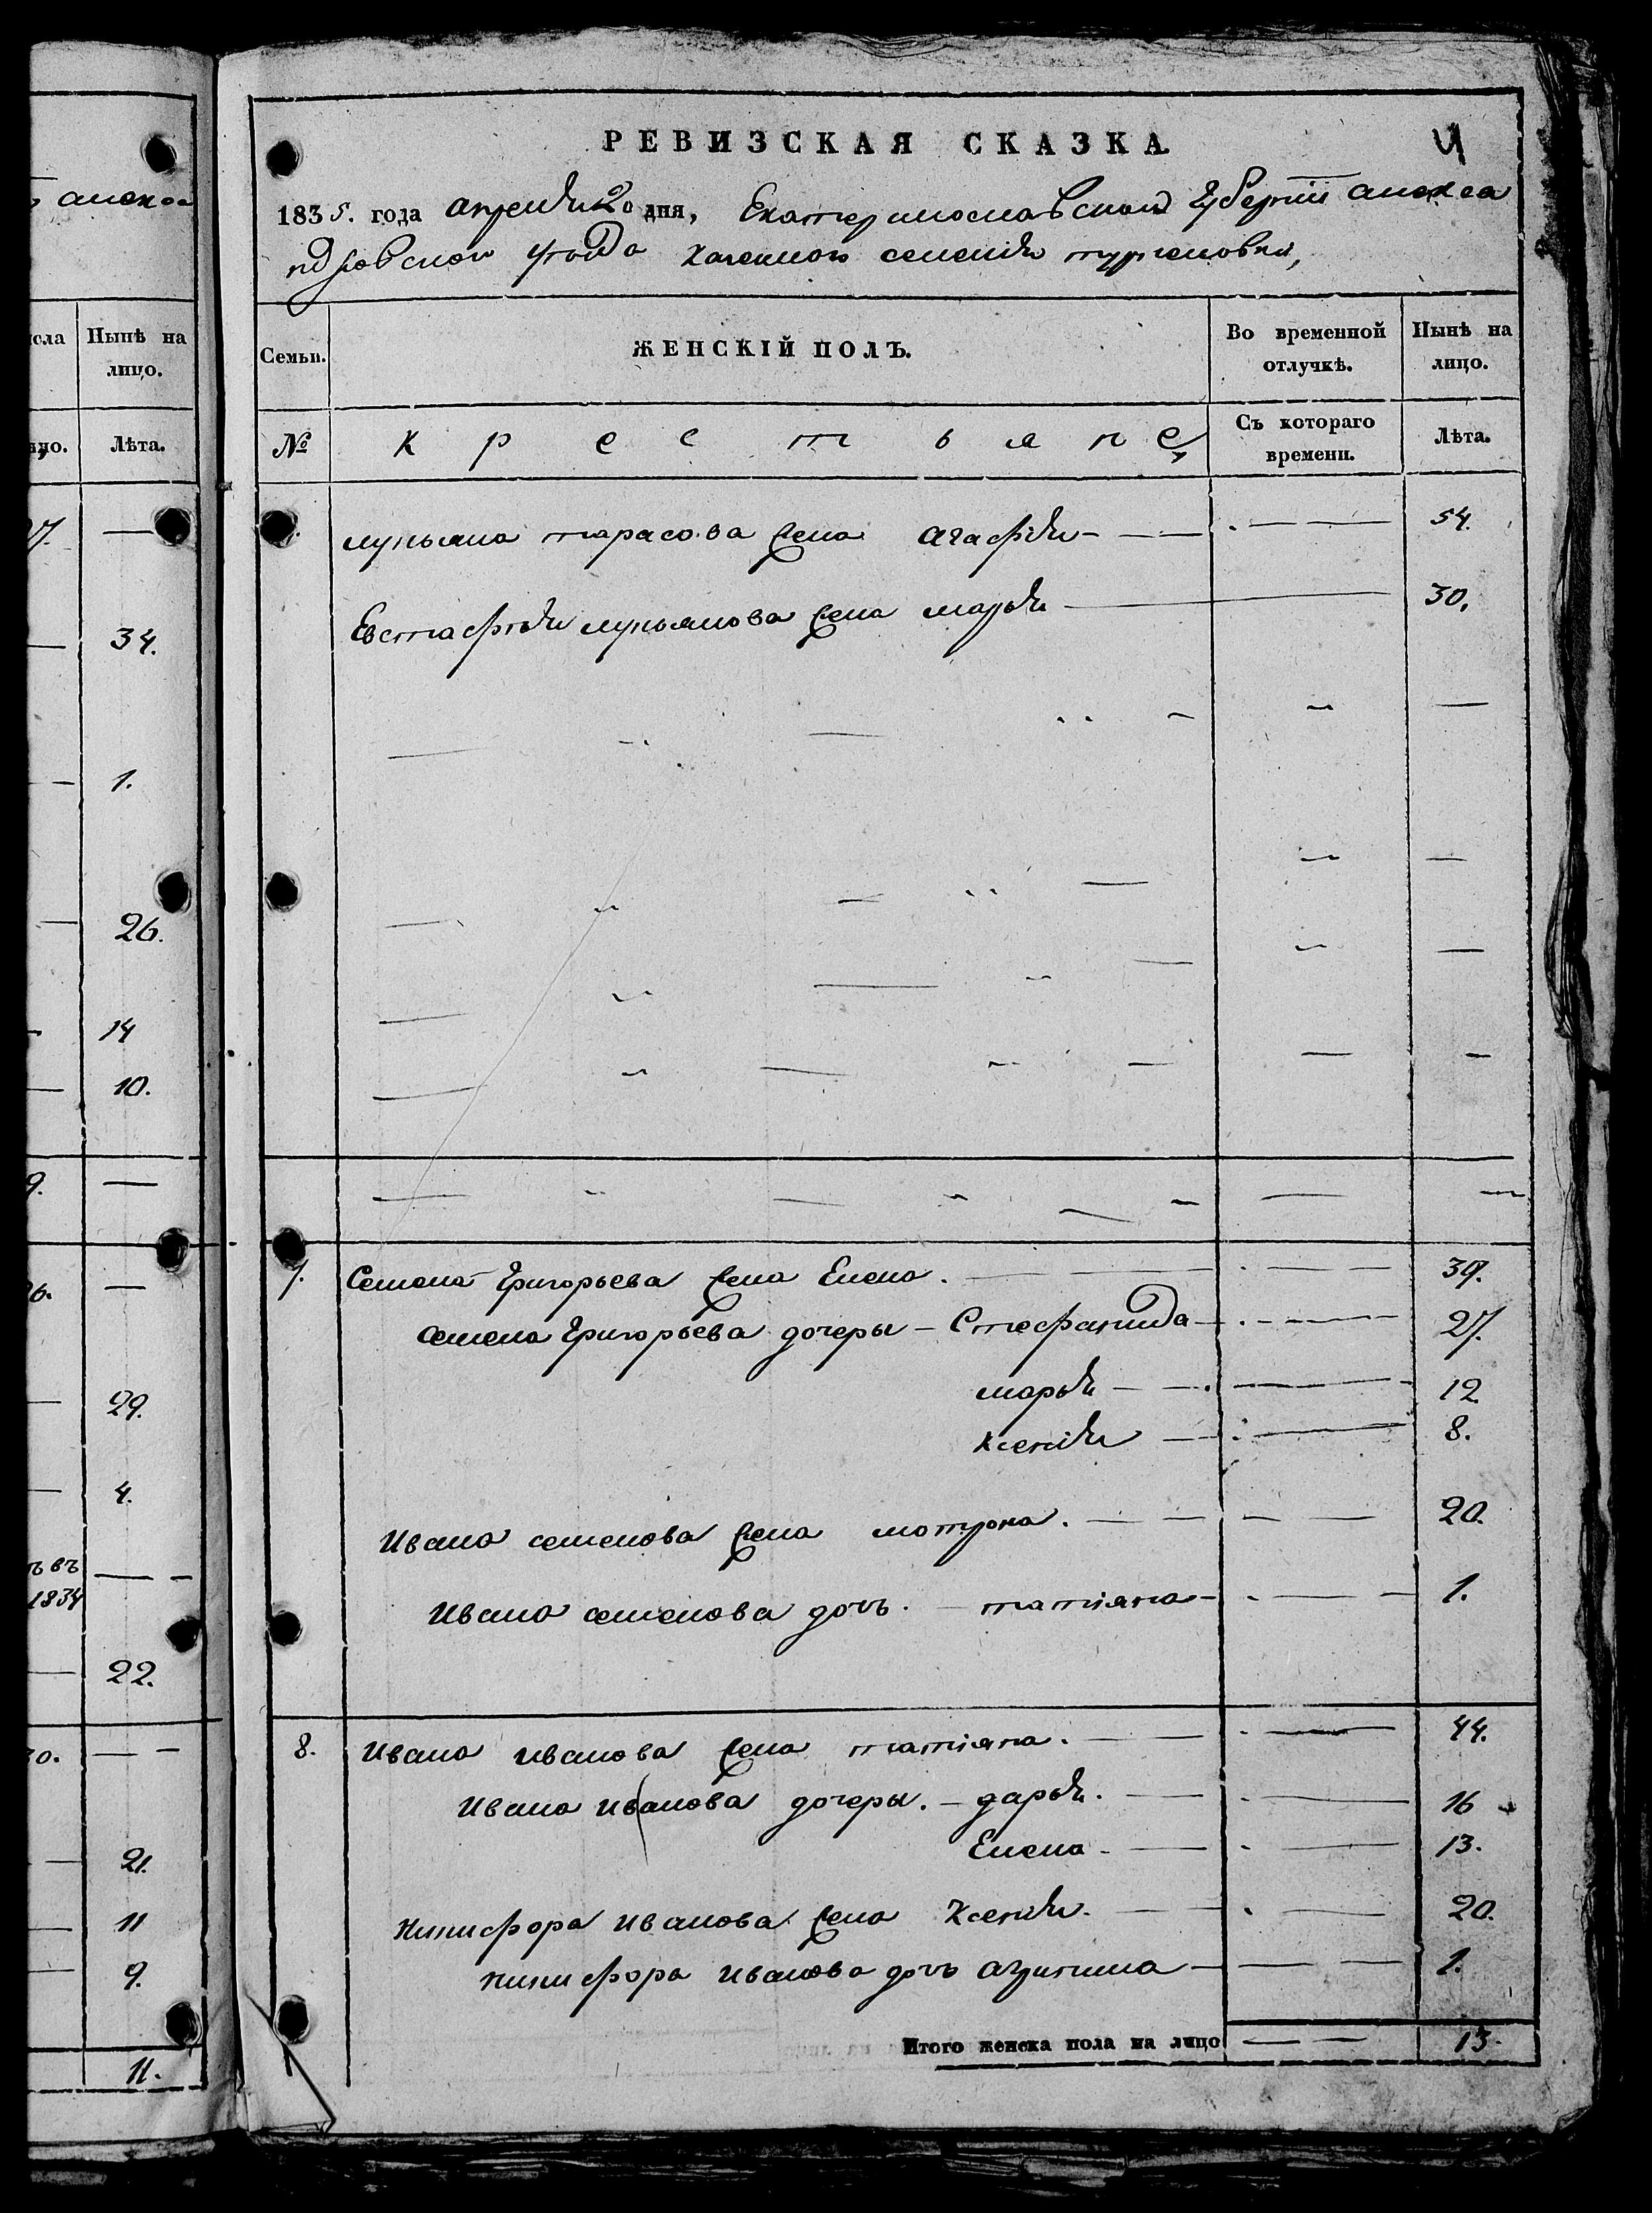 анек
сла
Нынѣ на
лицо.
но.
Лѣта.
7.
34.
1.
26.
14
10.
9.
6.
29.
4.
ъ въ
1834
22.
0.
21.
11
9.
11.
РЕВИЗСКАЯ СКАЗКА
4
1835. года апреля 20 дня, Екатеринославской Губернии алекса
ндровского уезда казенного селения
Семьи.
ЖЕНСКІЙ ПОЛЪ.
Во временной
отлучкѣ.
Нынѣ на
лицо.
№
Крестьяне
Съ котораго
времени.
Лѣта.
лукьяна тарасова жена агафія 54.
Евстафія лукьянова жена марья 30.
7. Семена Григорьева жена Елена. 39.
семена Григорьева дочеры — Стефанида 27.
марья 12
ксенія 8.
Ивана семенова жена мотрона. 20.
Ивана семенова дочь. татіяна 1.
8. Ивана иванова жена татіяна. 44.
Ивана иванова дочеры. — дарья. 16
Елена 13.
никифора иванова жена Ксенія. 20.
никифора иванова дочь агрипина 1.
Итого женска пола на лицо 13.